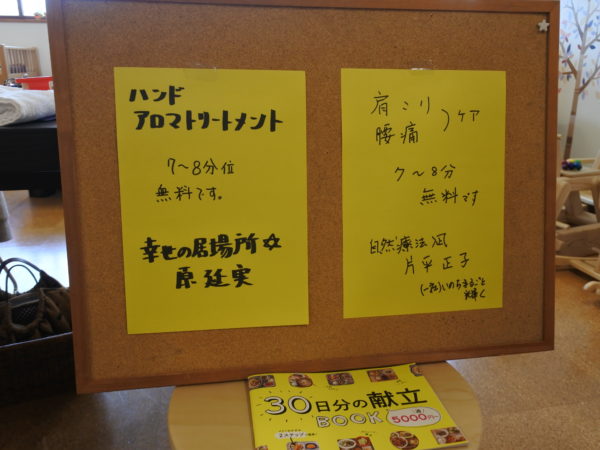 ハンド
アロマトリートメント
7〜8分位
無料です。
幸せの居場所☆
原廷実
肩こり
腰痛
ケア
7〜8分
無料です
自然療法凪
片平正子
(一社)いのちまるごと
輝く
30日分の献立
BOOK
5000円
2ステップ